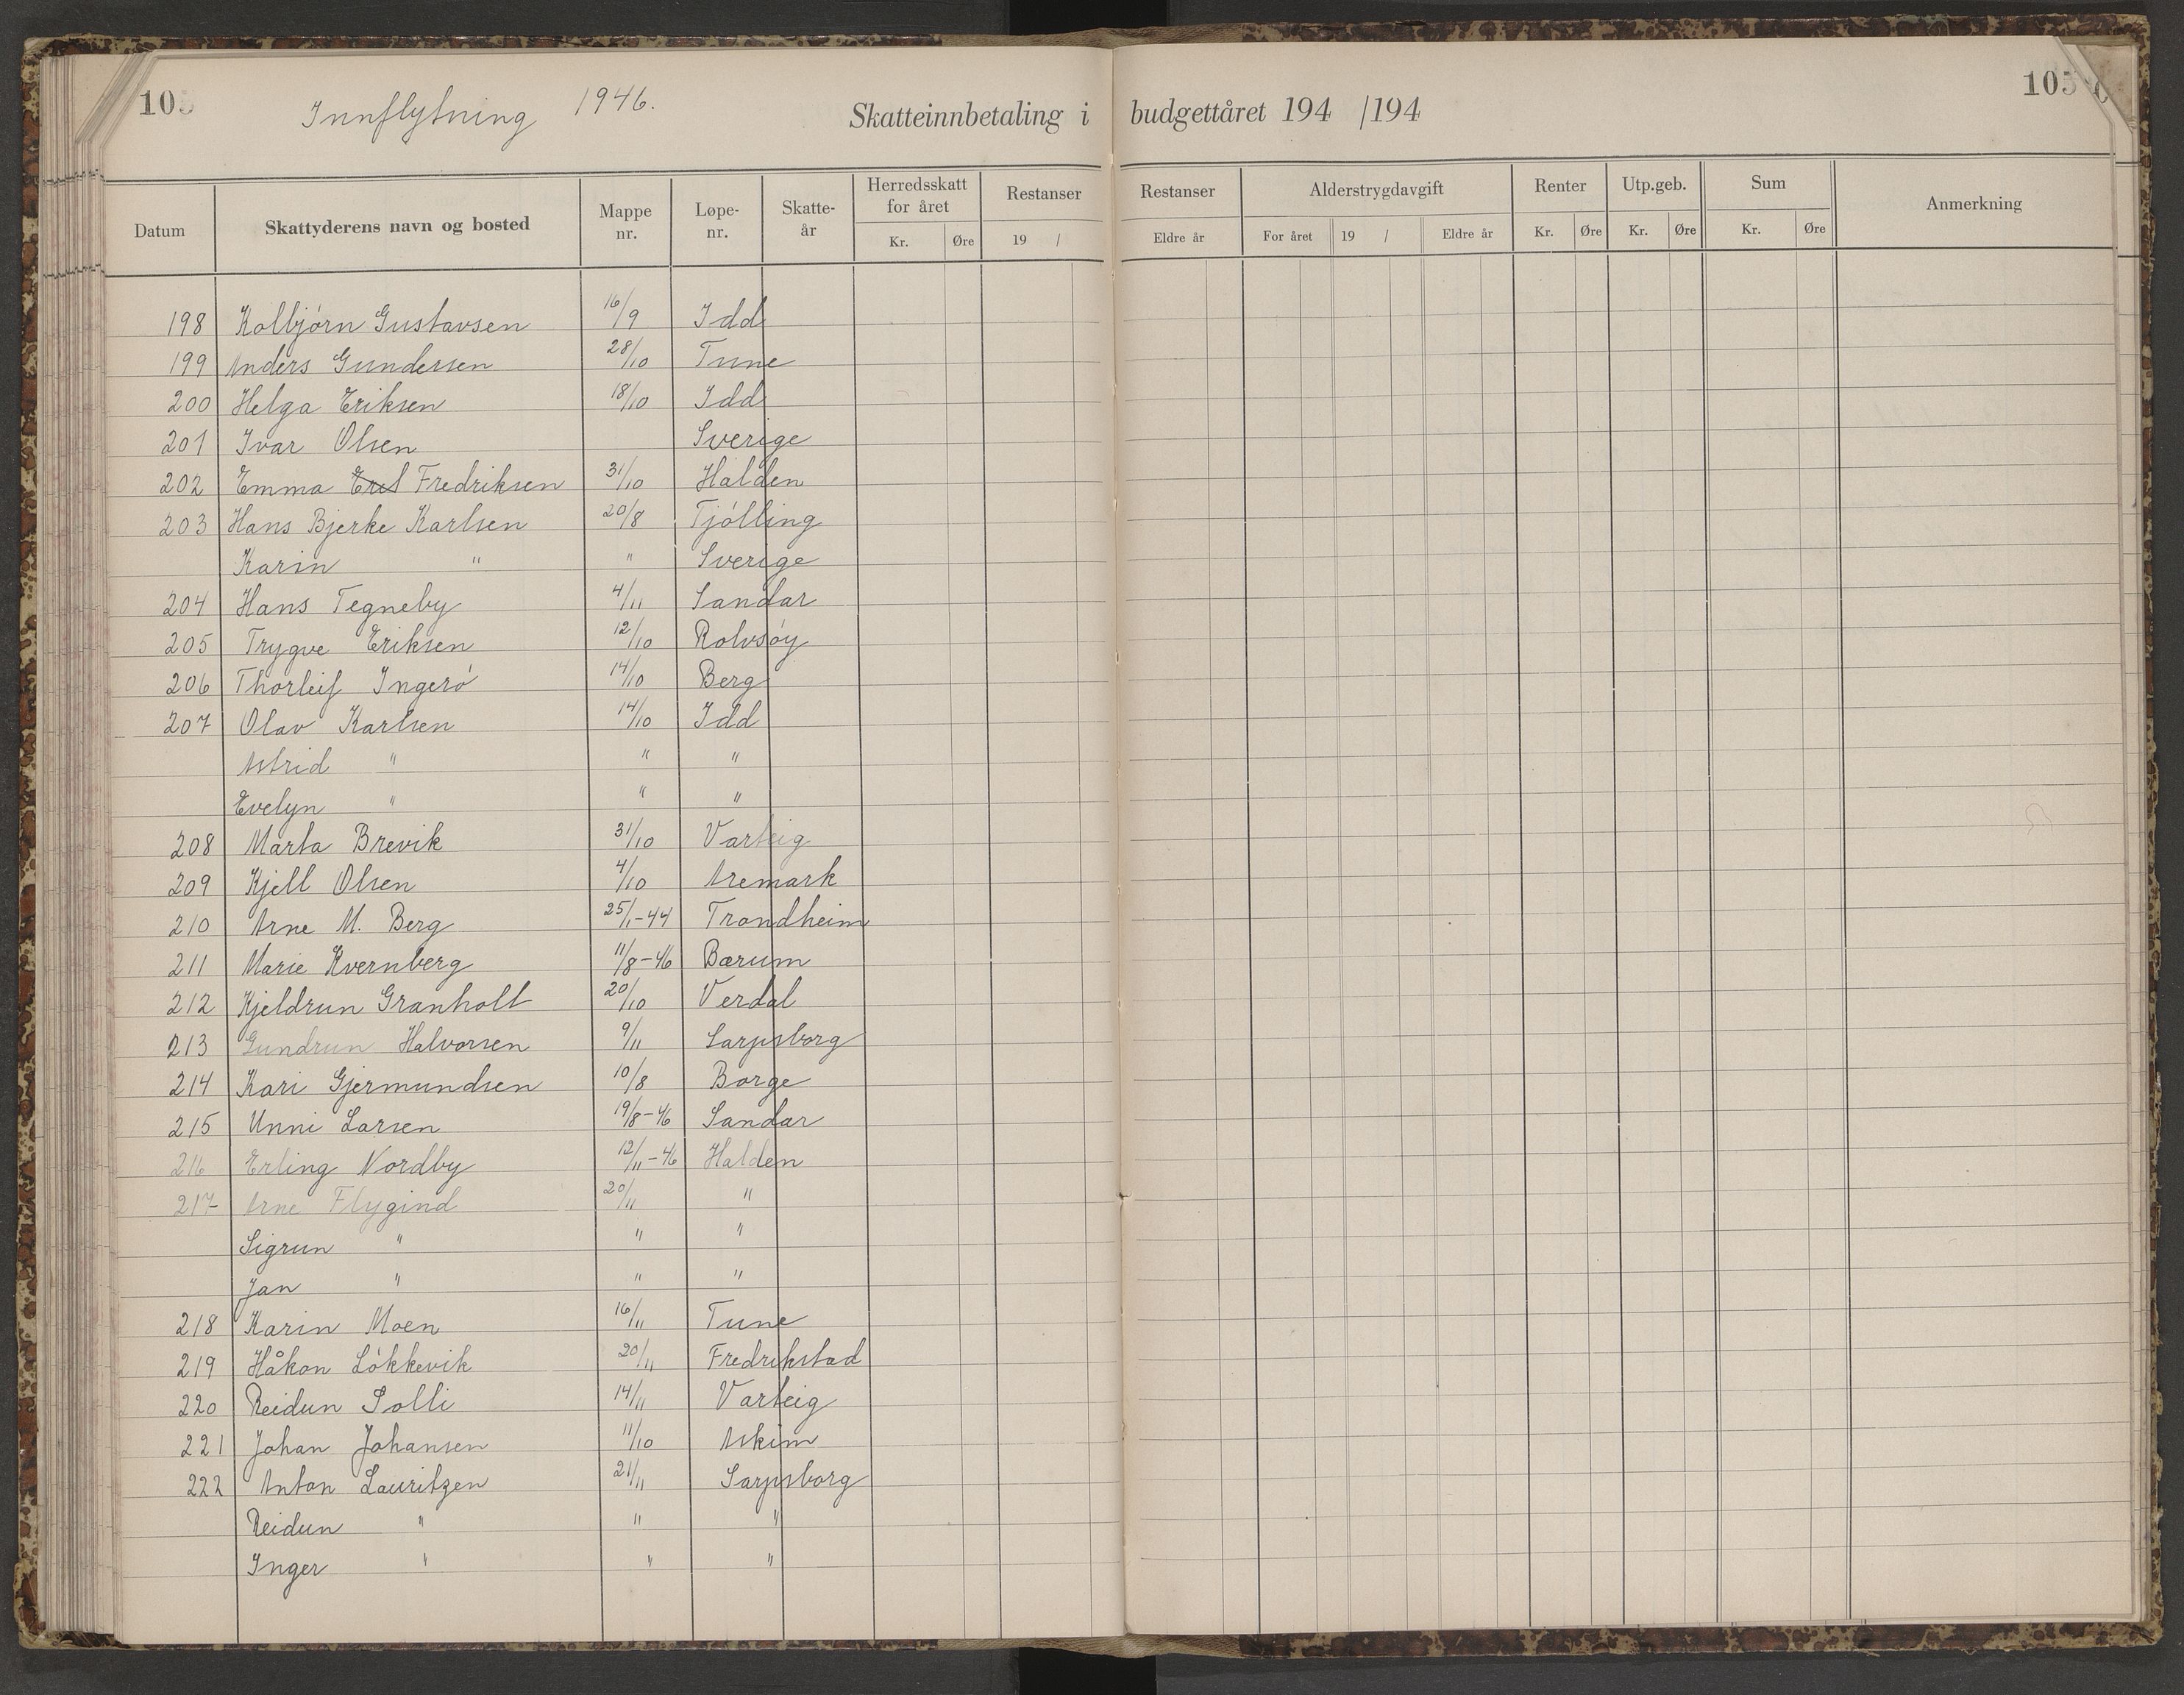 105 Innflytning 1946. Skatteinnbetaling i budgettåret 194 /194 105
Datum Skattyderens navn og bosted Mappe nr. Løpe-nr. Skatte-år Herredsskatt for året Kr. Øre Restanser 19 / Restanser Eldre år Alderstrygdavgift For året 19 / Eldre år Renter Kr. Øre Utp.geb. Kr. Øre Sum Kr. Øre Anmerkning
198 Kolbjørn Gustavsen 16/9 Idd
199 Anders Gundersen 28/10 Tune
200 Helga Eriksen 18/10 Idd
201 Ivar Olsen Sverige
202 Emma Fredriksen 31/10 Halden
203 Hans Bjerke Karlsen 20/8 Tjølling
Karin " " Sverige
204 Hans Tegneby 4/11 Sandar
205 Trygve Eriksen 12/10 Rolvsøy
206 Thorleif Ingerø 14/10 Berg
207 Olav Karlsen 14/10 Idd
Astrid " " "
Evelyn " " "
208 Marta Brevik 31/10 Varteig
209 Kjell Olsen 4/10 Aremark
210 Arne M. Berg 25/1-44 Trondheim
211 Marie Kvernberg 11/8-46 Bærum
212 Kjeldrun Granholt 20/10 Verdal
213 Gundrun Halvorsen 9/11 Sarpsborg
214 Kari Gjermundsen 10/8 Borge
215 Unni Larsen 19/8-46 Sandar
216 Erling Nordby 12/11-46 Halden
217 Arne Flygind 20/11 "
Sigrun " " "
Jan " " "
218 Karin Moen 16/11 Tune
219 Håkon Løkkevik 20/11 Fredrikstad
220 Reidun Solli 14/11 Varteig
221 Johan Johansen 11/10 Askim
222 Anton Lauritzen 21/11 Sarpsborg
Reidun " " "
Inger " " "